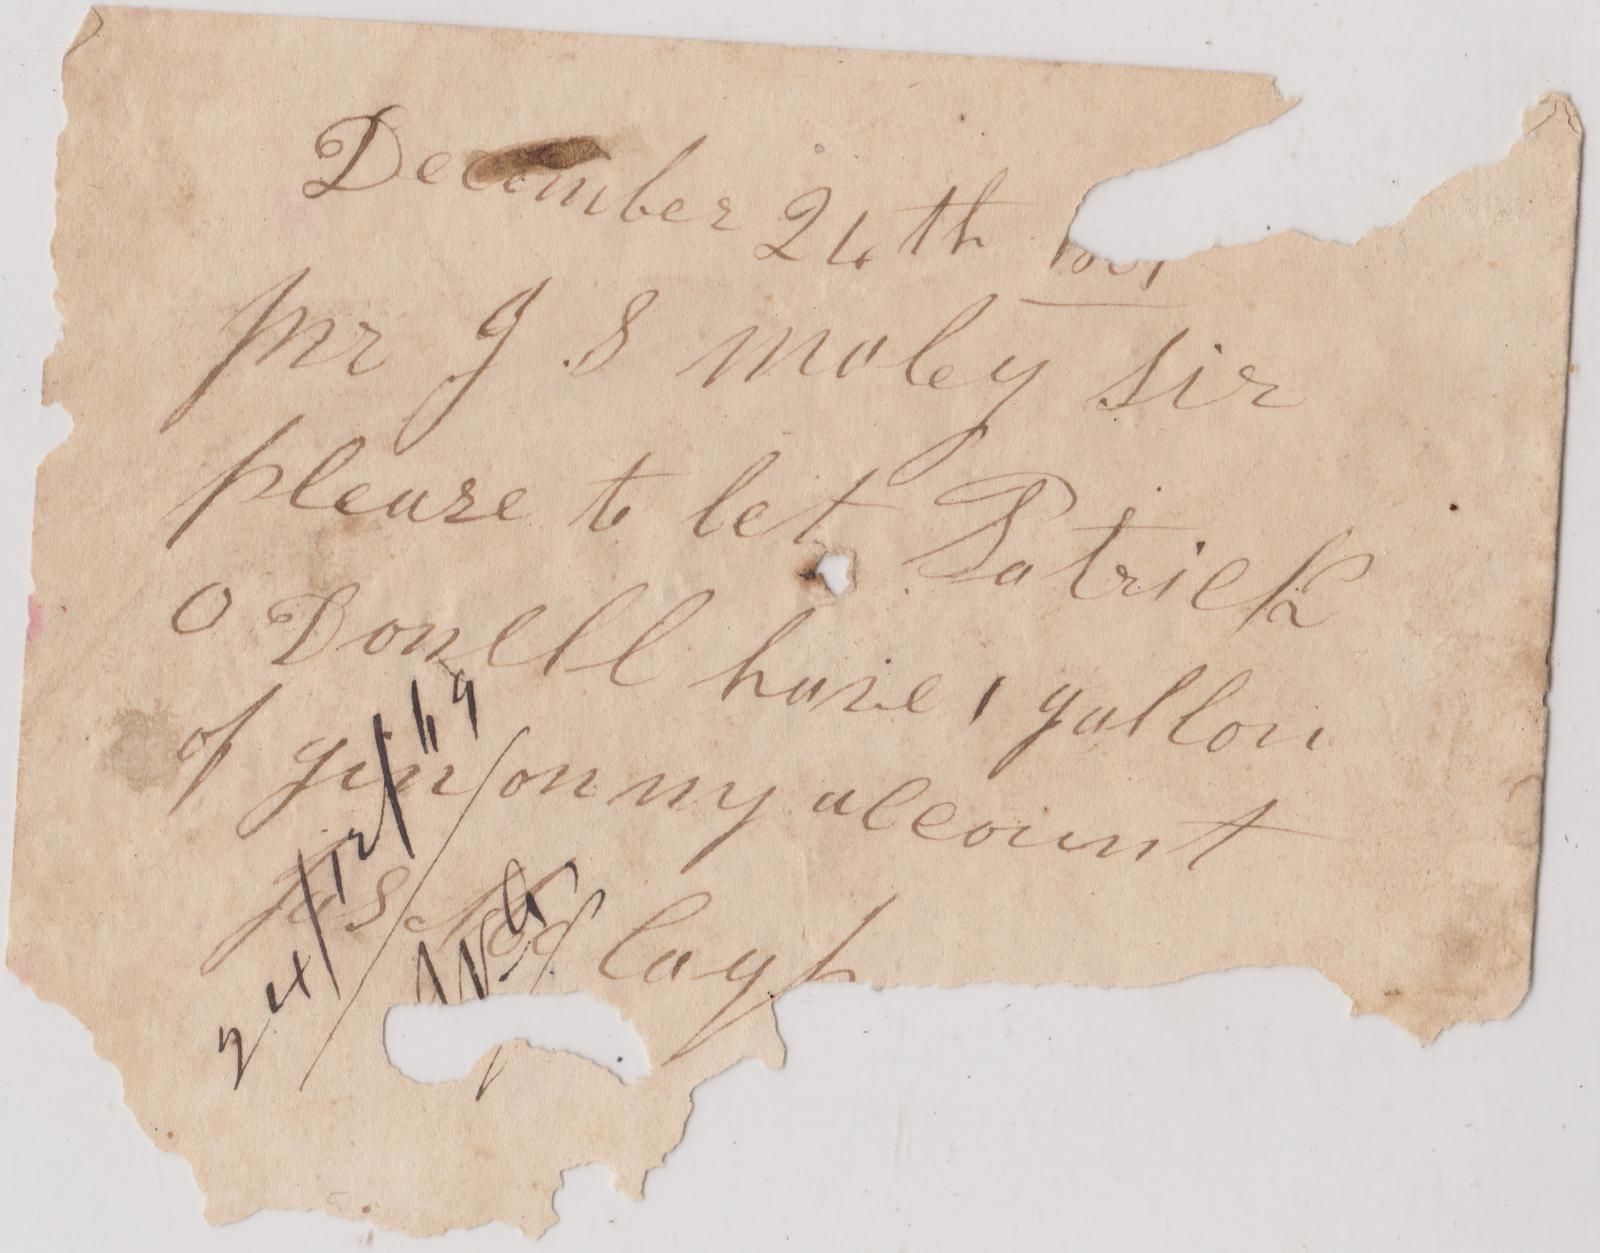 December 24th
mr J S maley sir
please to let Patrick
O Donell have 1 gallon
of gin on my account
Jas
24/12/69